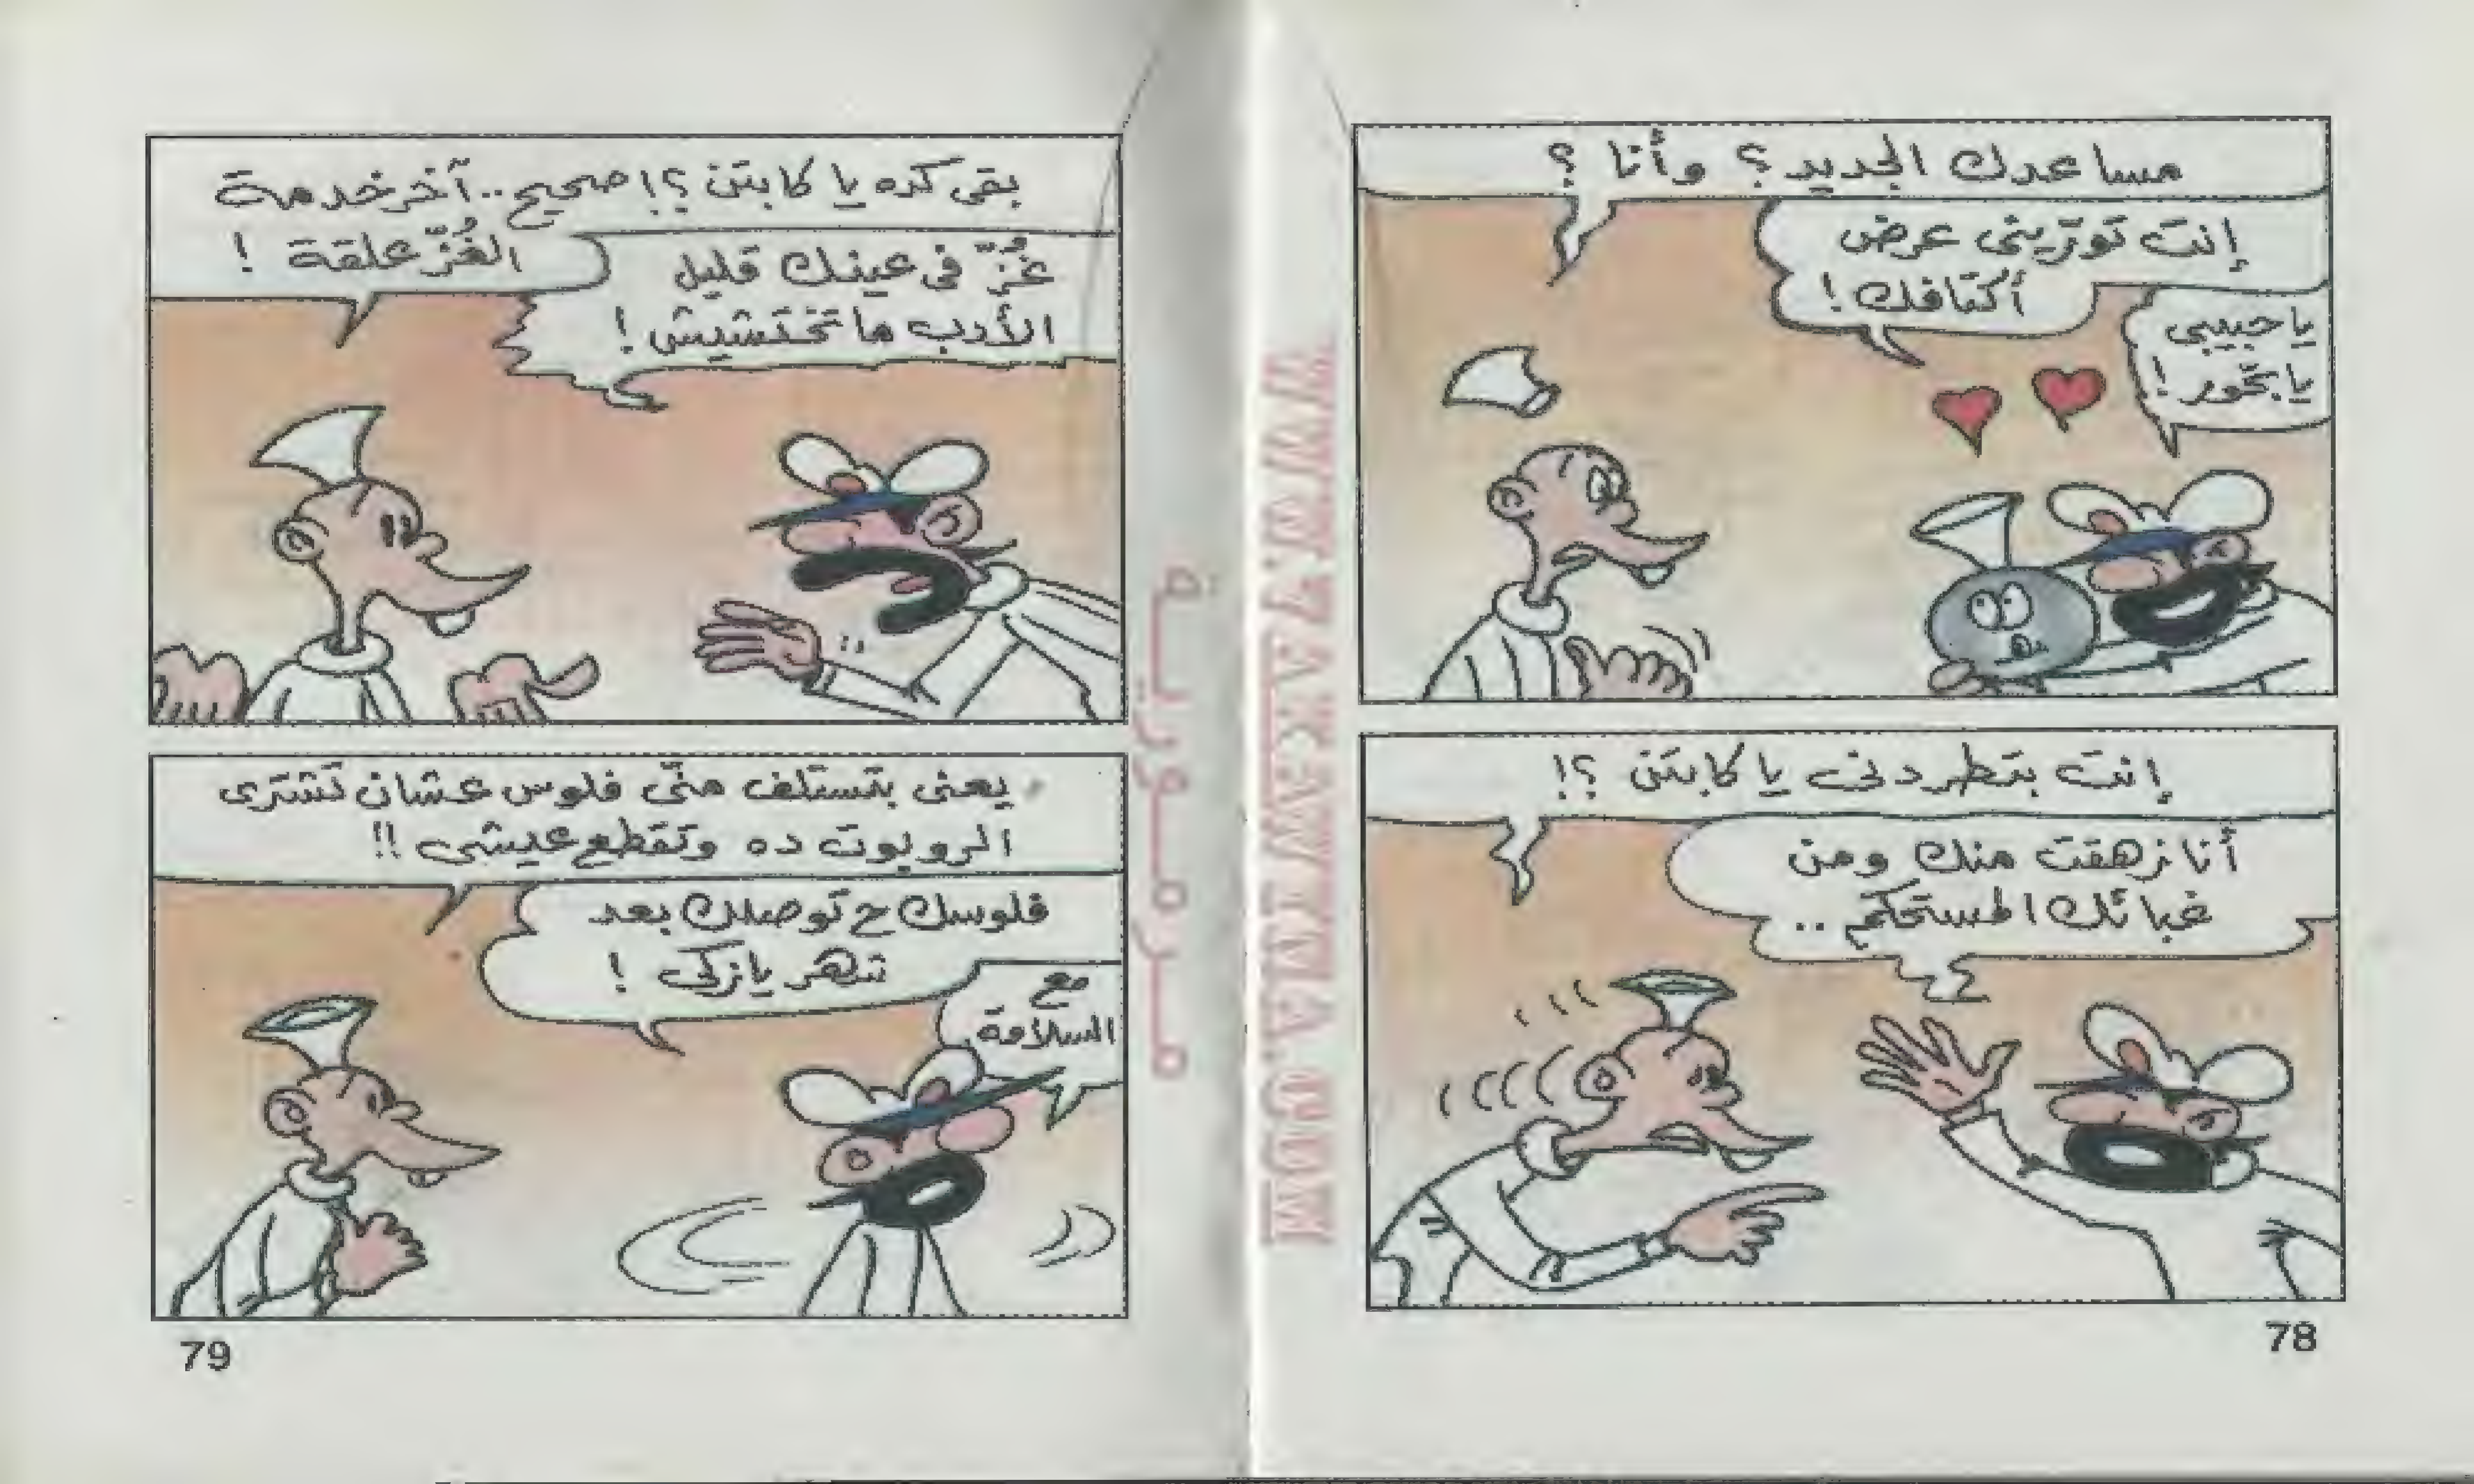 مساعدك الجديد؟ وأنا ؟
إنت تورّينى عرض
أكتافك !
يا حبيبى
يا بخّور !
إنت بتطردنى يا كابتن ؟!
أنا زهقت منك ومن
غبائك المستحكم ..
78
بقى كده يا كابتن ؟! صحيح .. آخر خدمة
الغُزّ علقة !
غُزّ فى عينك قليل
الأدب ما تختشيش !
يعنى بتستلف منّى فلوس عشان تشترى
الروبوت ده وتقطع عيشى !!
فلوسك ح توصلك بعد
شهر يا زكى !
مع
السلامة
79